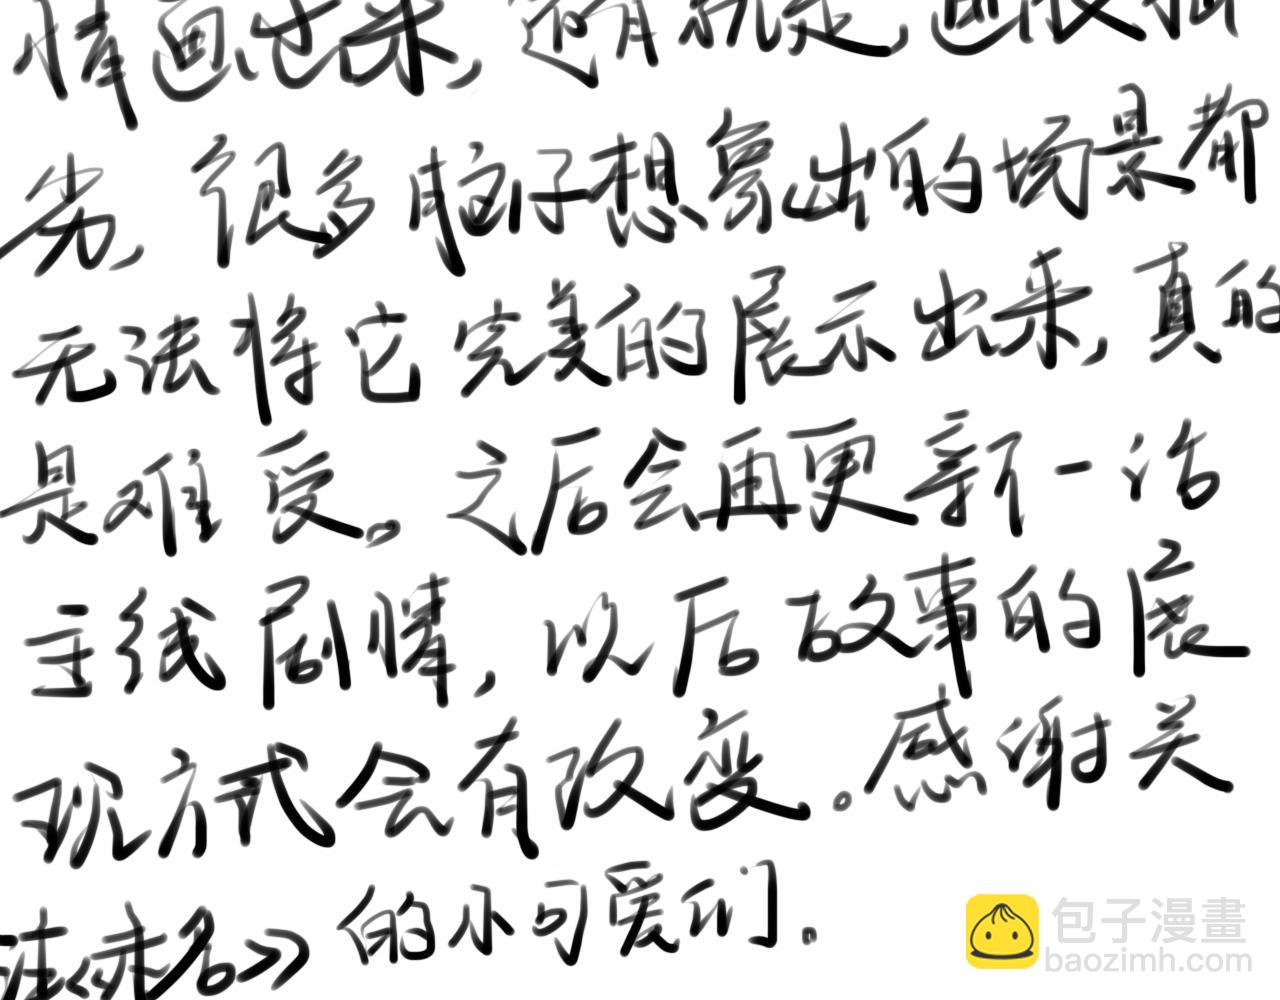 情画出来，还有就是，画技拙
劣，很多脑子想象出的场景都
无法将它完美的展示出来，真的
是难受。之后会再更新一话
主线剧情，以后故事的展
现方式会有改变。感谢关
注《未名》的小可爱们。
包子漫畫
baozimh.com